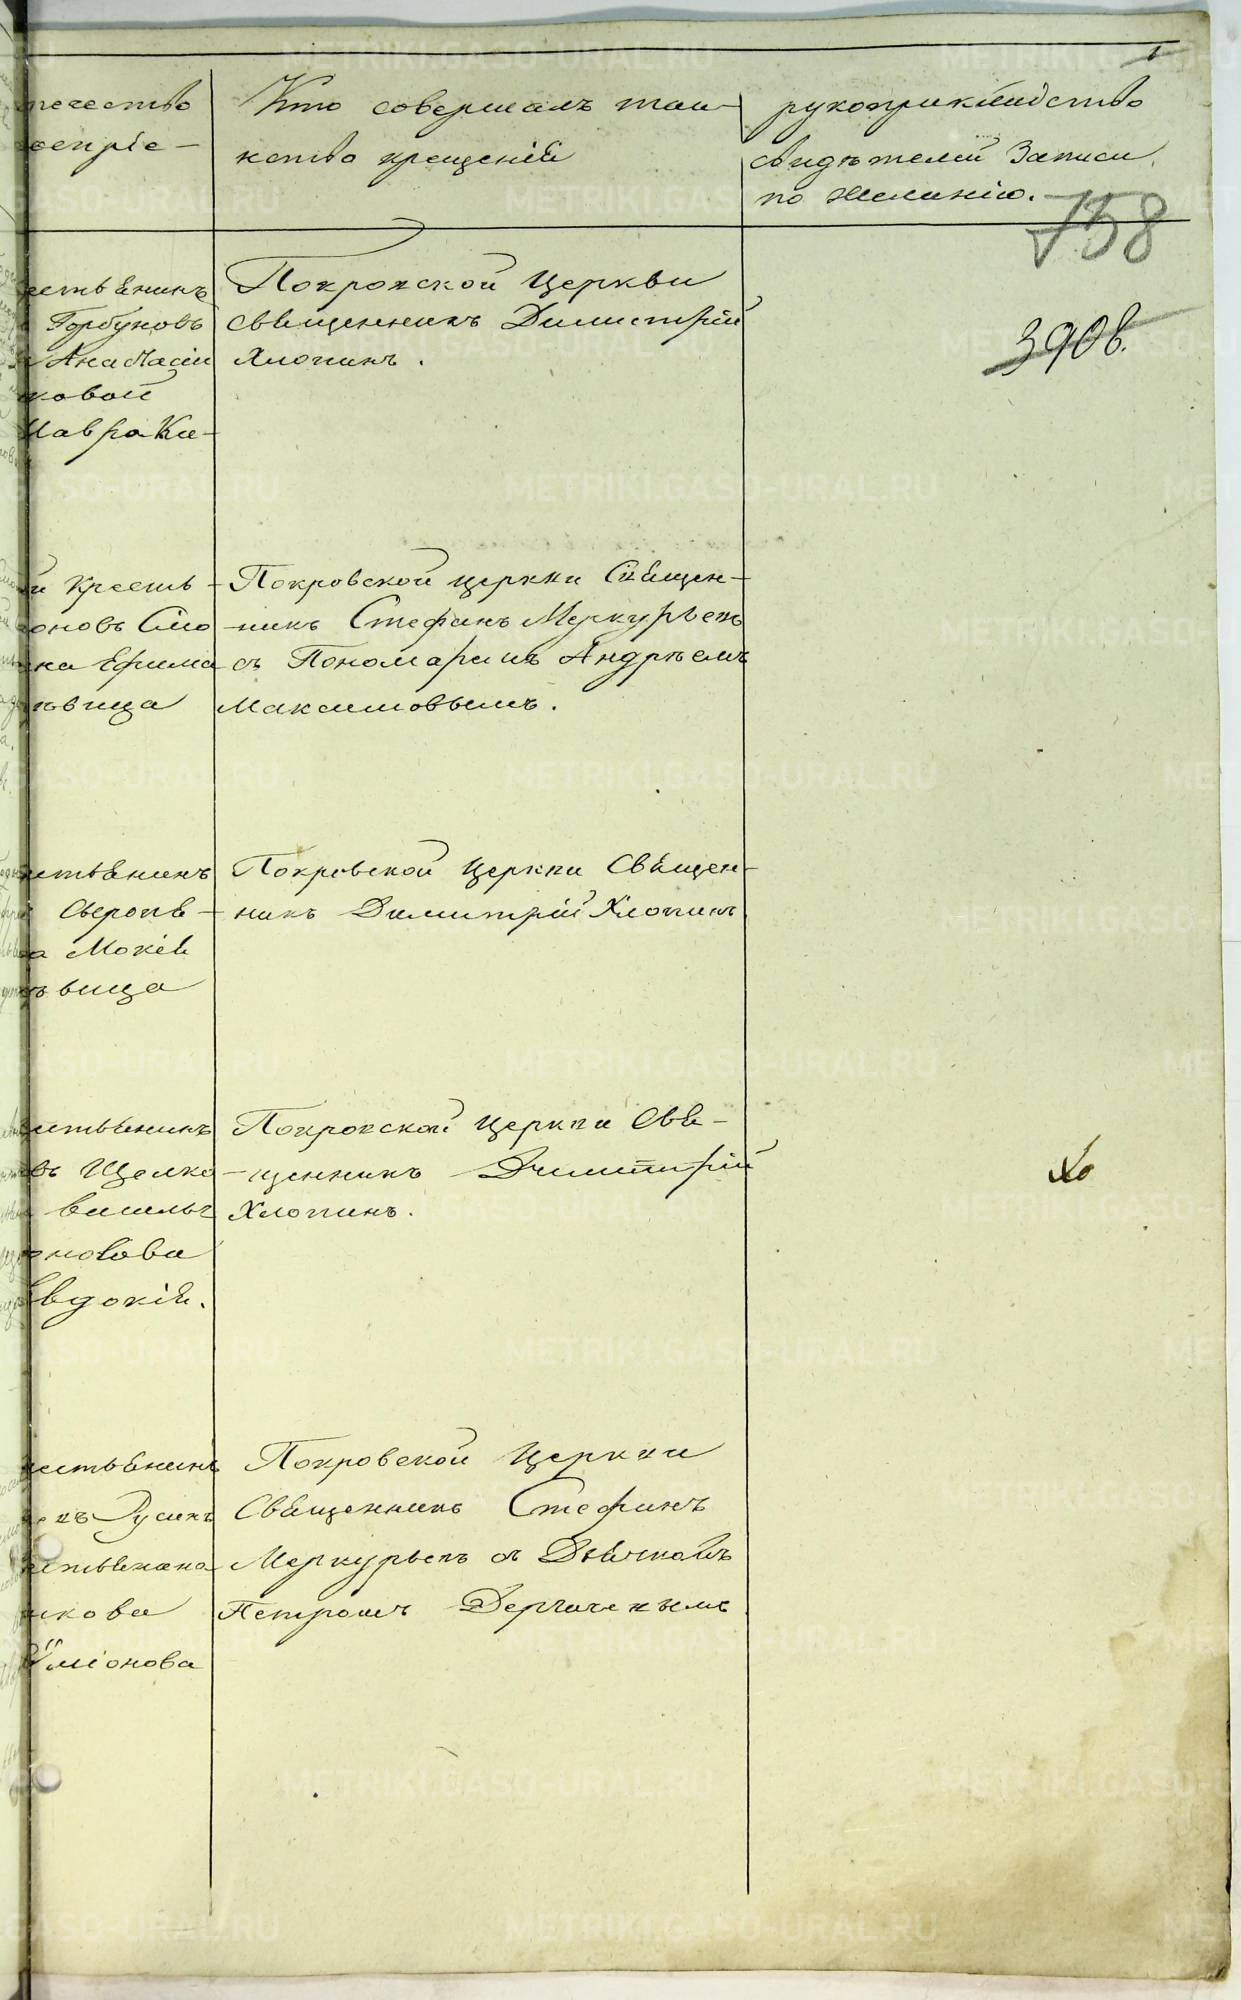 1
Кто совершалъ таин-
ство крещенія
рукоприкладство
свидѣтелей Записи
по желанію.
758
3908.
Горбуновъ
Анастасіи
ковой
Мавра Ки-
Покровской Церкви
Священникъ Димитрій
Хлопинъ.
и Кресть-
оновъ Сѵо
на Ефима
вица
Покровской церкви Священ-
никъ Стефанъ Меркурьевъ
съ Пономаремъ Андрѣемъ
Максимовымъ.
стьянинъ
а Мокіи
вица
Покровской Церкви Священ-
никъ Димитрій Хлопинъ.
стьянинъ
въ Щелко
Василья
Евдокія.
Покровской Церкви Свя-
щенникъ Димитрій
Хлопинъ.
Хо
стьянинъ
стьянина
кова
Покровской Церкви
Священникъ Стефанъ
Меркурьевъ съ Дьячкомъ
Петромъ Дергачевымъ.
METRIKI.GASO-URAL.RU